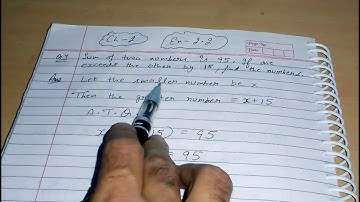 Ch-2 Ex-2.2
Q.4 Sum of two numbers is 95. If one
exceeds the other by 15, find the numbers.
Ans Let the smaller number be x
Then the greater number = x+15
A.T.Q
x 15) = 95
= 95